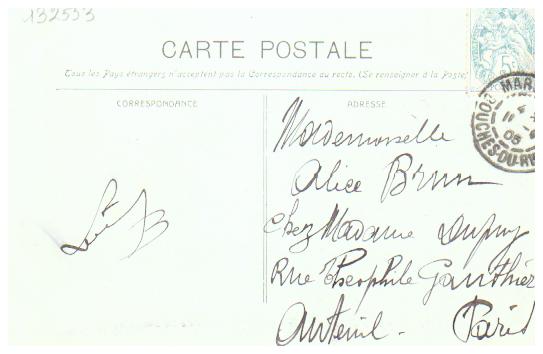 132553
CARTE POSTALE
Tous les Pays étrangers n'acceptent pas la Correspondance au recto. (Se renseigner à la Poste)
CORRESPONDANCE
ADRESSE
MAR
4
11
05
BOUCHES-DU-RH
5c
Mademoiselle
Alice Brun
chez Madame Dupuy
Rue Théophile Gauthier
Auteuil - Paris